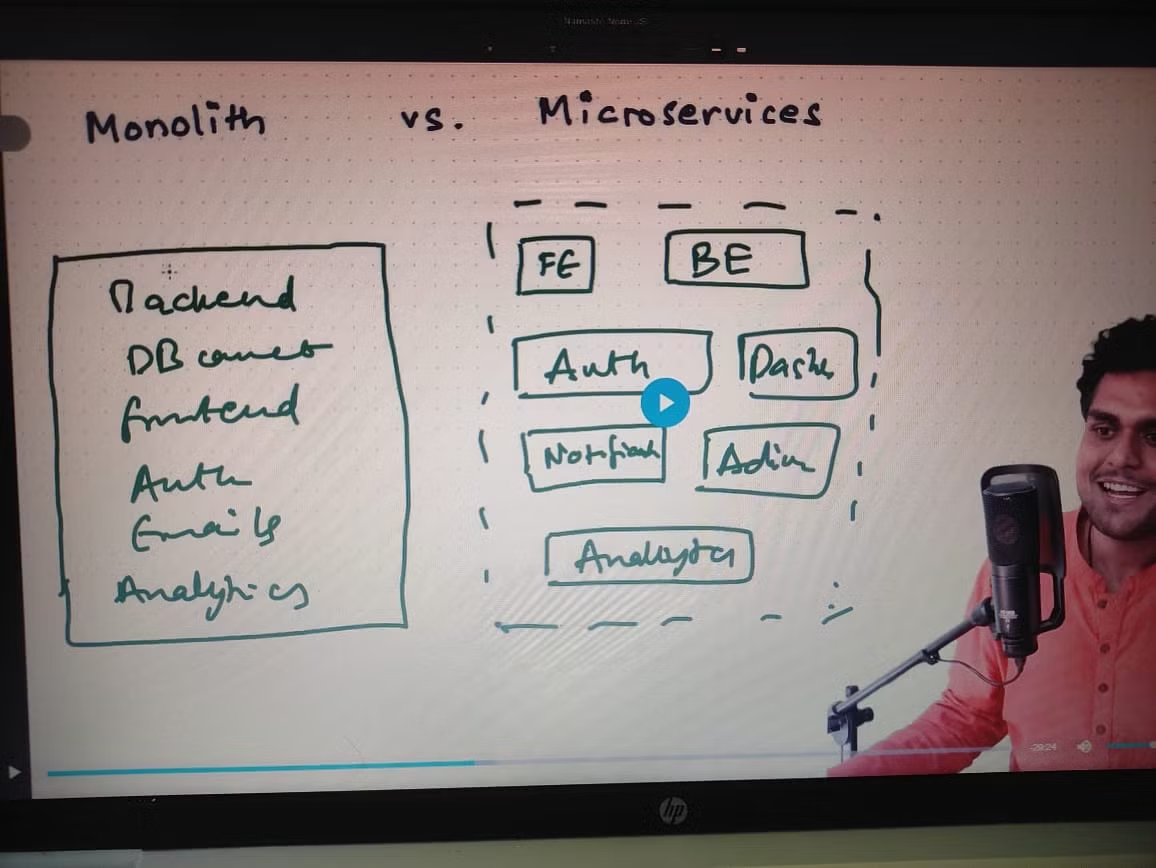 Namaste Node JS
Monolith vs. Microservices
Backend
DB connect
frontend
Auth
Emails
Analytics
FE BE
Auth Dashb
Notificatn Admin
Analytics
-29:24
hp